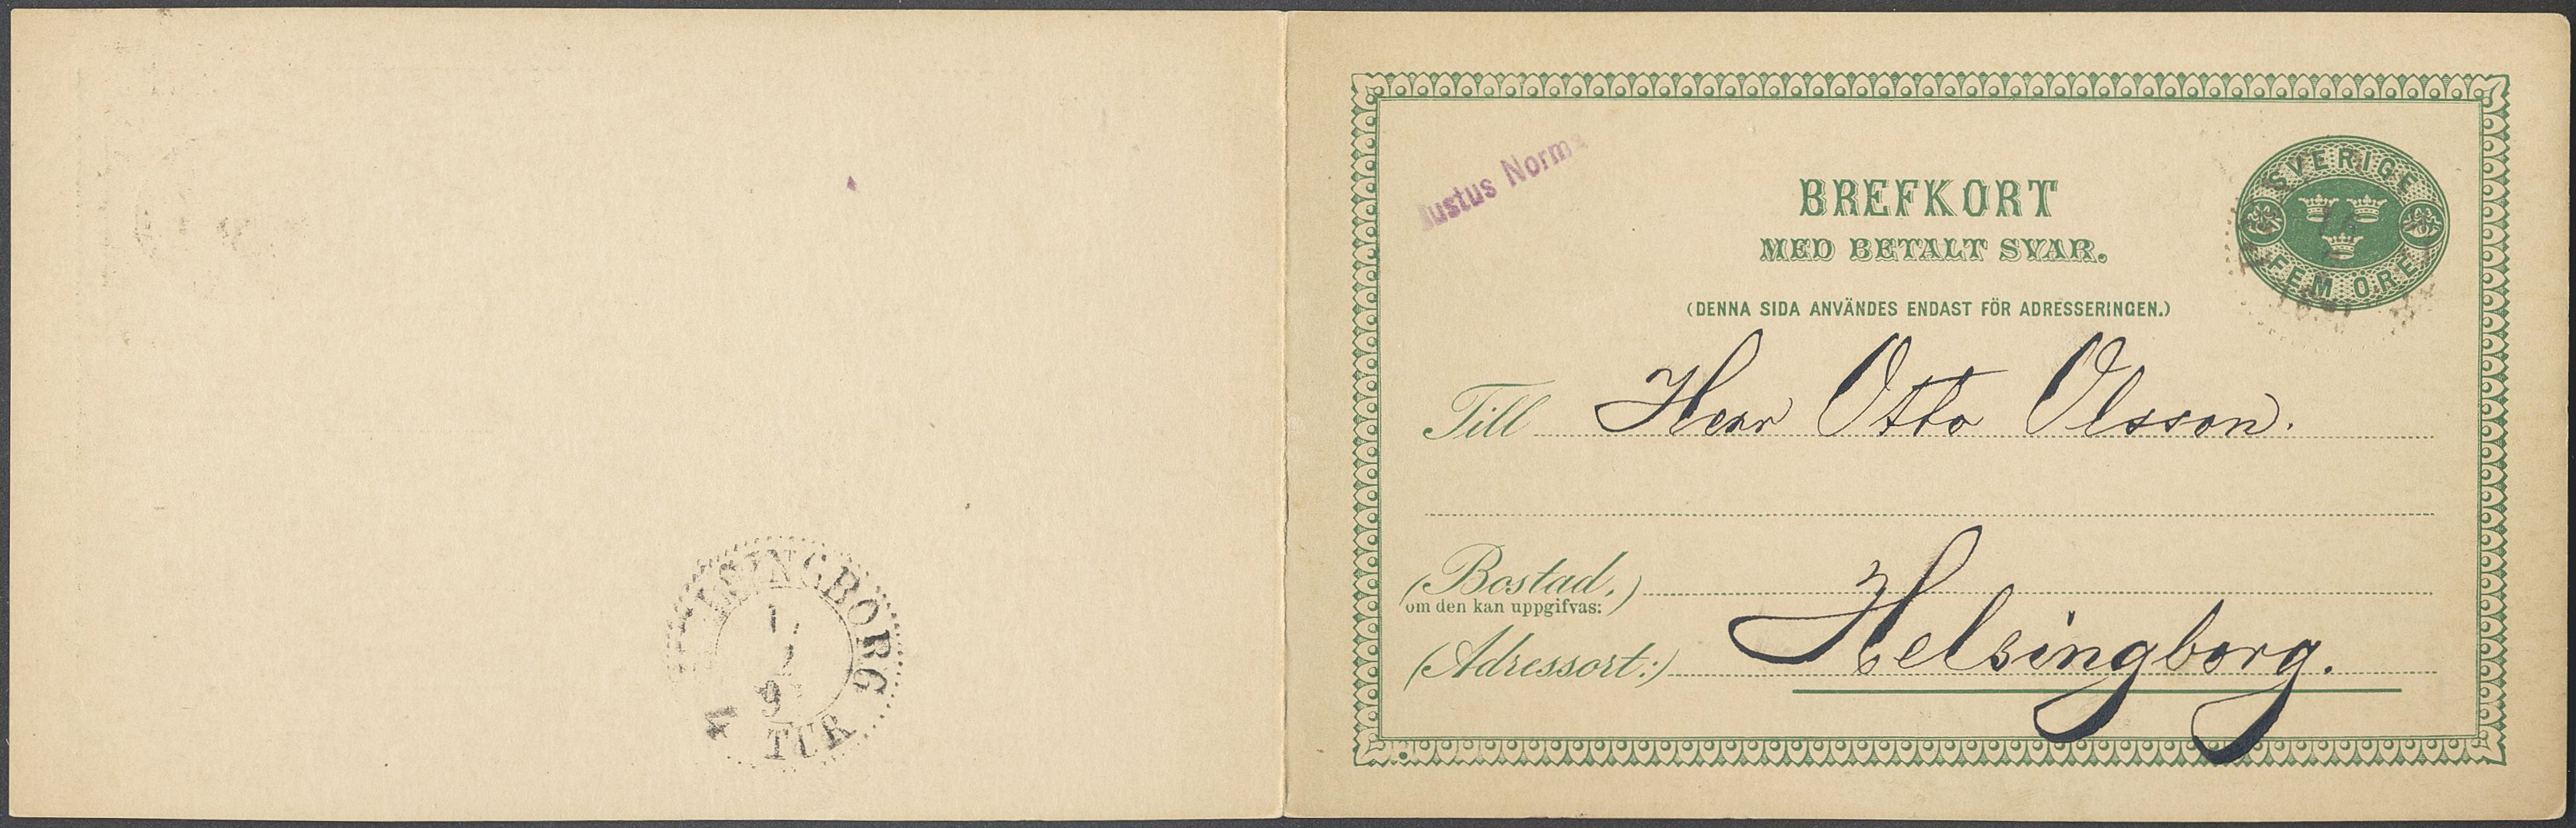 ustus Norm
BREFKORT
MED BETALT SVAR.
(DENNA SIDA ANVÄNDES ENDAST FÖR ADRESSERINGEN.)
SVERIGE
FEM ÖRE
Till Herr Otto Olsson.
(Bostad.)
om den kan uppgifvas:
(Adressort:) Helsingborg.
LSINGBORG
1
7
9
4 TUR